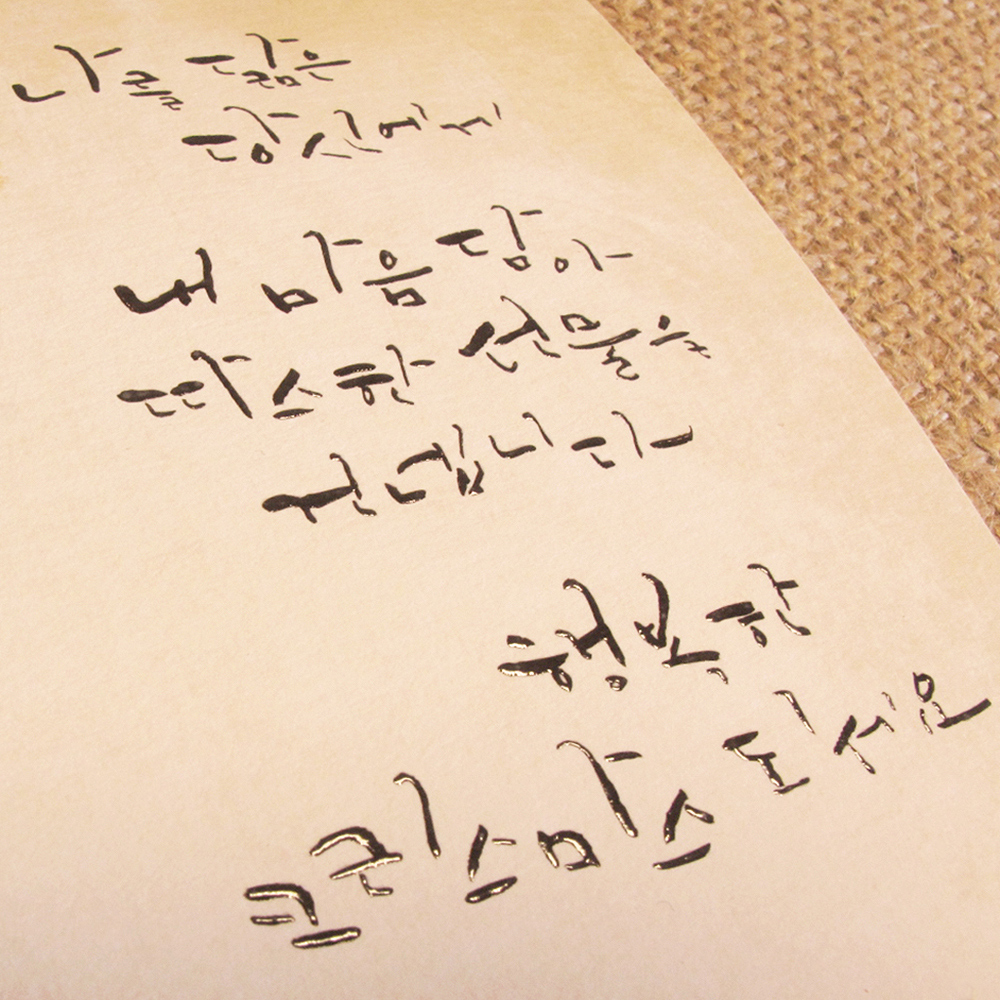 나를 닮은
당신에게
내 마음 담아
따스한 선물을
건넵니다
행복한
크리스마스 되세요